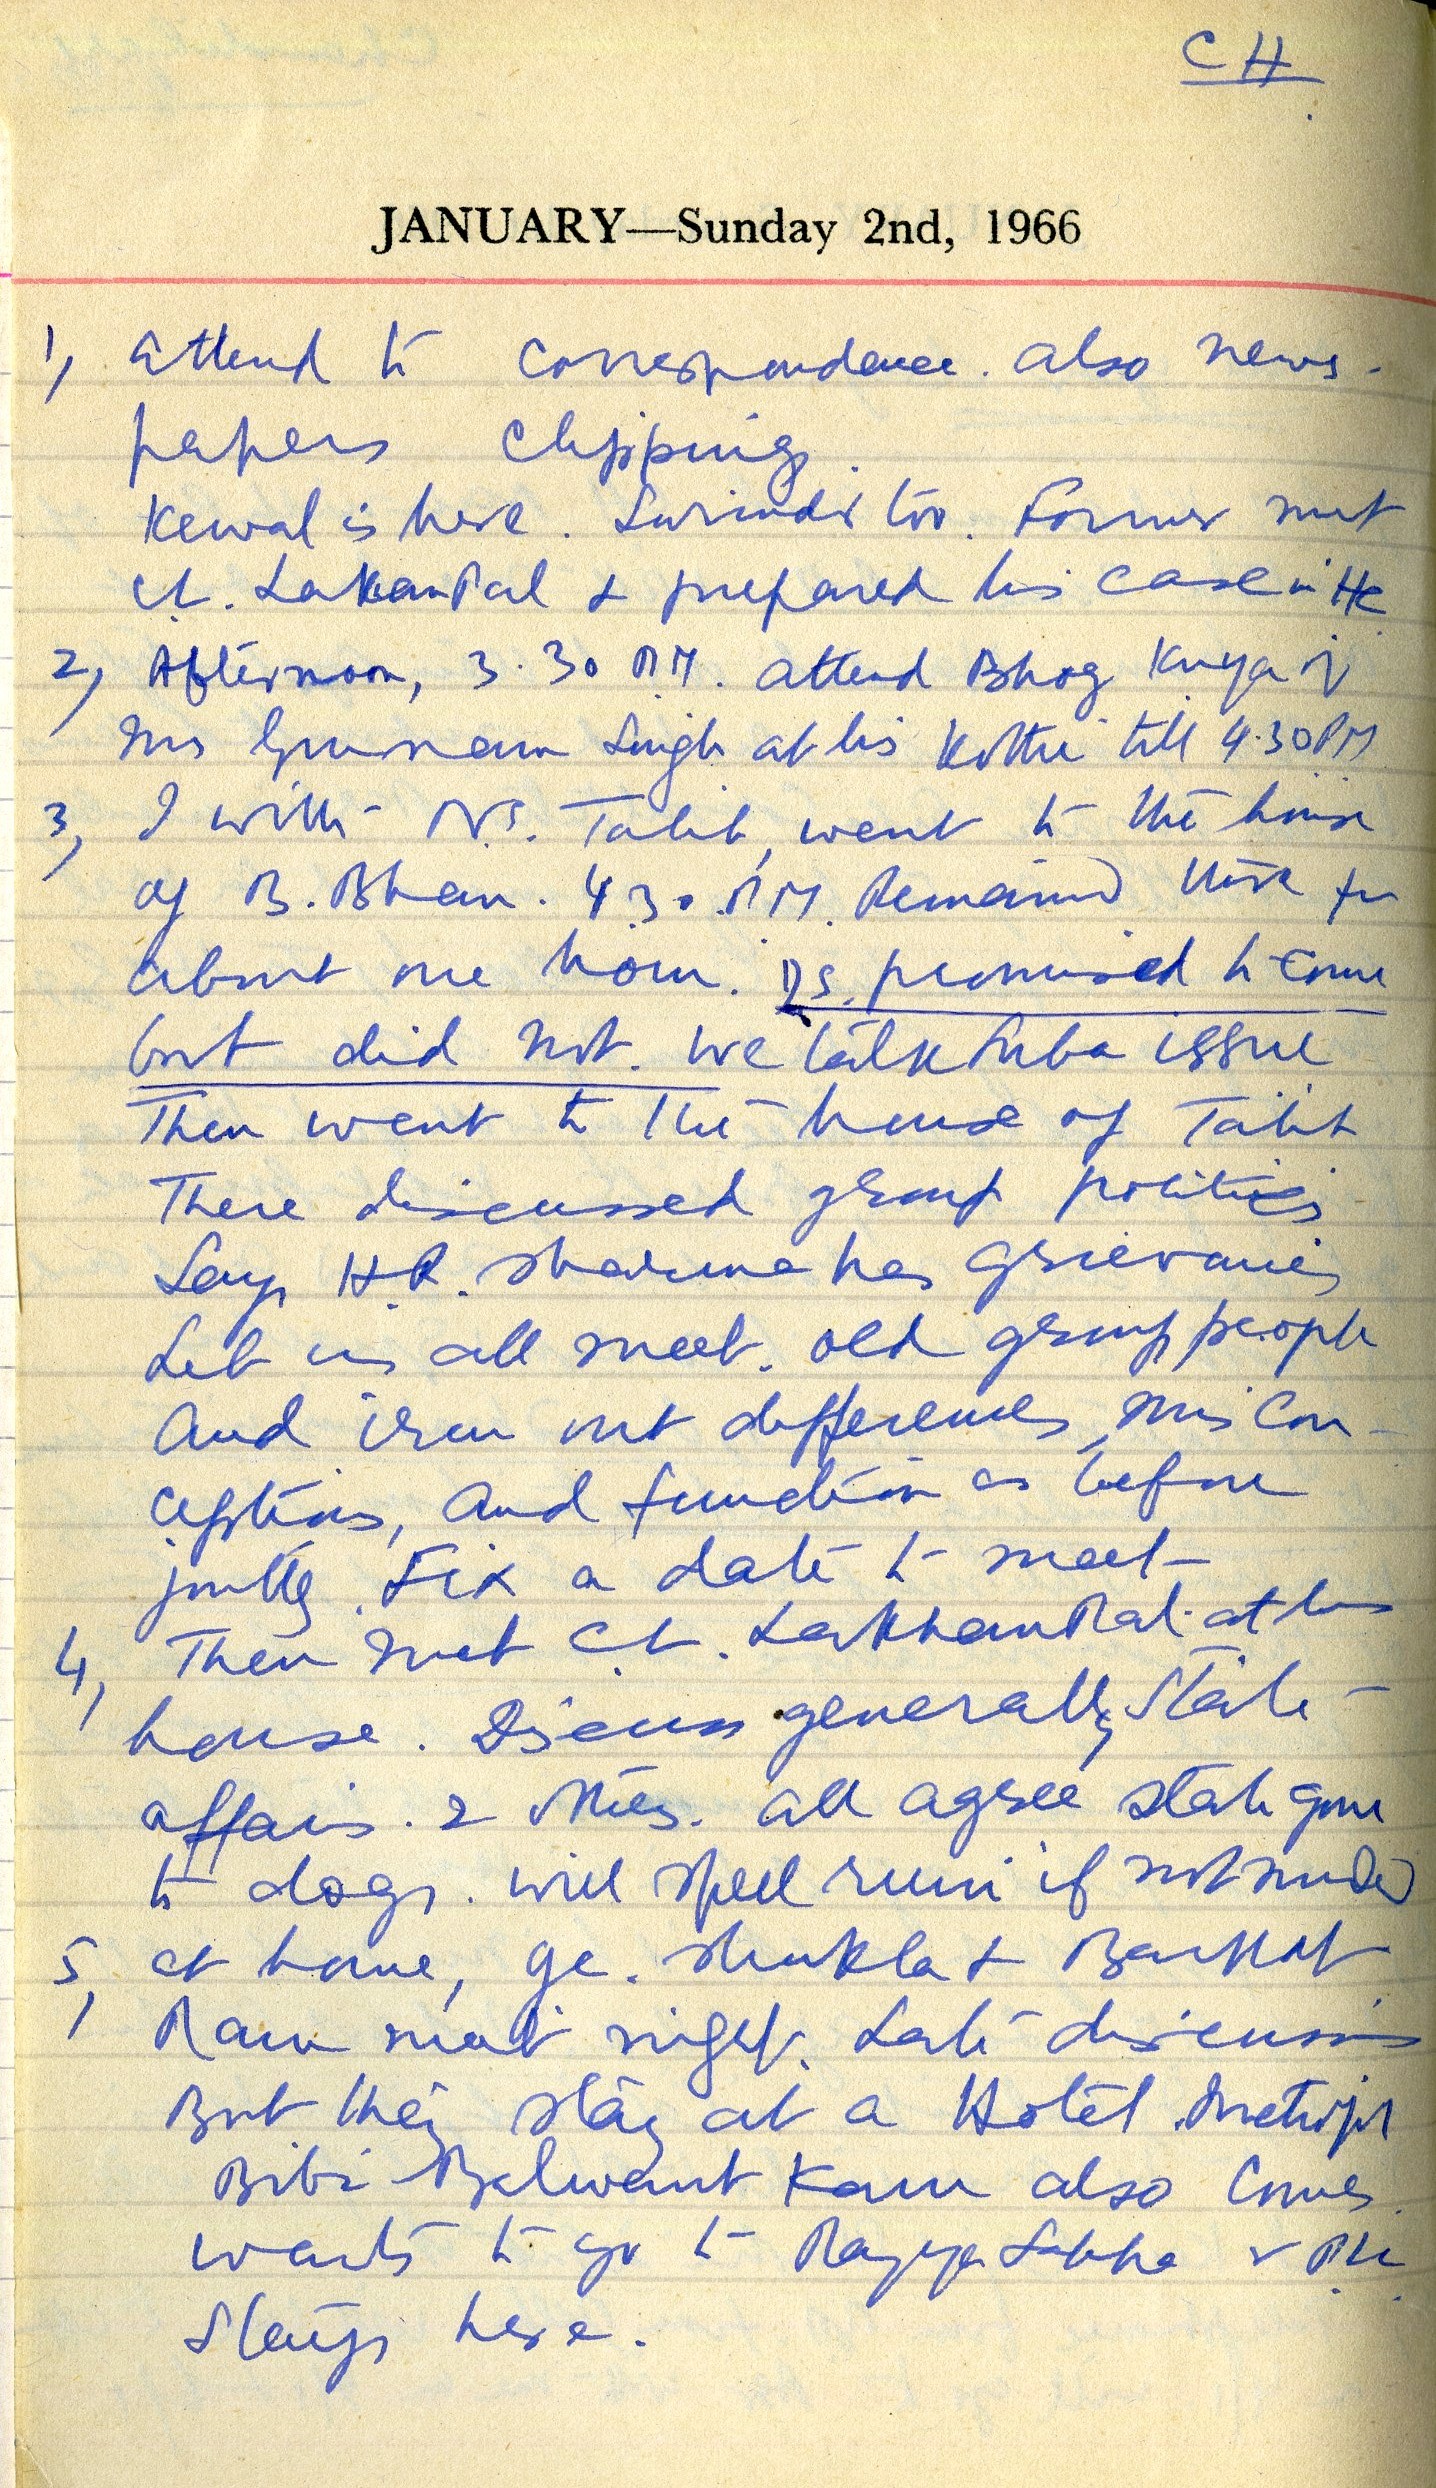 CH
JANUARY—Sunday 2nd, 1966
1, Attend to correspondence. also news-
papers clipping.
Kewal is here. Surinder too. Former met
CL. LakanPal & prepared his case in HC
2, Afternoon, 3.30 PM. attend Bhog Kirya of
Mrs Gurnam Singh at his Kothi till 4.30 PM
3, I with NS. Talib, went to the house
of B. Bhan. 4 30. PM. Remained there for
about one hour. DS. promised to come
but did not. We talk Suba issue
Then went to the house of Talib
There discussed group politics
Says H.R. Sharma has grievances
Let us all meet. old group people
And iron out differences, miscon-
ceptions, and function as before
jointly. Fix a date to meet
4, Then met C.L. LakhanPal at his
house. Discuss generally state
affairs. 2 Ntes. all agree state gone
to dogs. will spell ruin if not mended
5, at home, Shukla & Barkat
Ram meet night. Late discussions
But they stay at a Hotel.
Bibi Balwant Kaur also comes.
wants to go to Rajya Sabha
Stays here.